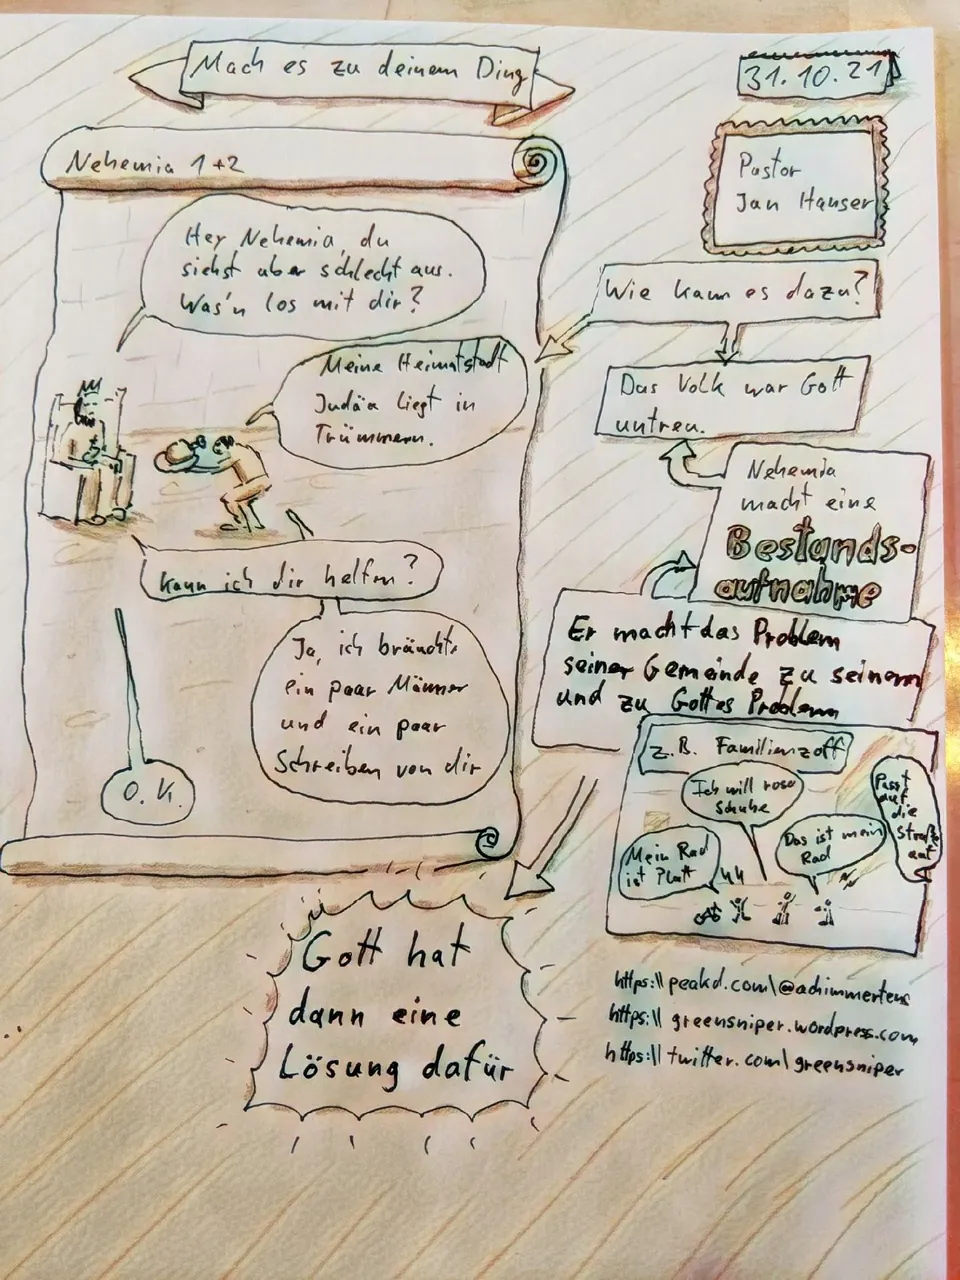 Mach es zu deinem Ding
31.10.21
Pastor
Jan Hauser
Nehemia 1+2
Hey Nehemia, du
siehst aber schlecht aus.
Was'n los mit dir?
Meine Heimatstadt
Judäa liegt in
Trümmern.
Kann ich dir helfen?
Ja, ich bräuchte
ein paar Männer
und ein paar
Schreiben von dir
O.K.
Wie kam es dazu?
Das Volk war Gott
untreu.
Nehemia
macht eine
Bestands-
aufnahme
Er macht das Problem
seiner Gemeinde zu seinem
und zu Gottes Problem
z.B. Familienzoff
Ich will rosa
Schuhe
Passt
auf
die
Straße
auf
Mein Rad
ist Platt
Das ist mein
Rad
Gott hat
dann eine
Lösung dafür
https:\\peakd.com\@achimmertens
https:\\greensniper.wordpress.com
https:\\twitter.com\greensniper